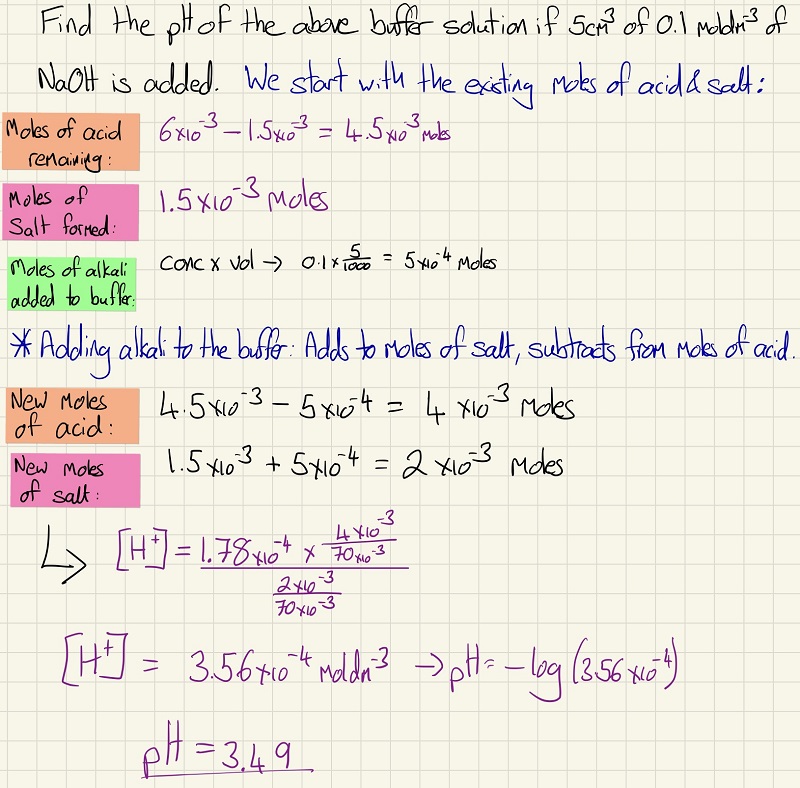 Find the pH of the above buffer solution if 5cm³ of 0.1 moldm⁻³ of
NaOH is added. We start with the existing moles of acid & salt:
Moles of acid remaining: 6x10⁻³ – 1.5x10⁻³ = 4.5x10⁻³ moles
Moles of Salt formed: 1.5x10⁻³ Moles
Moles of alkali added to buffer: conc x vol → 0.1 x 5/1000 = 5x10⁻⁴ Moles
* Adding alkali to the buffer: Adds to moles of salt, subtracts from moles of acid.
New Moles of acid: 4.5x10⁻³ – 5x10⁻⁴ = 4 x10⁻³ Moles
New moles of salt: 1.5x10⁻³ + 5x10⁻⁴ = 2 x10⁻³ Moles
↳ [H⁺] = 1.78x10⁻⁴ x 4x10⁻³/70x10⁻³
2x10⁻³/70x10⁻³
[H⁺] = 3.56x10⁻⁴ moldm⁻³ → pH = –log (3.56x10⁻⁴)
pH = 3.49